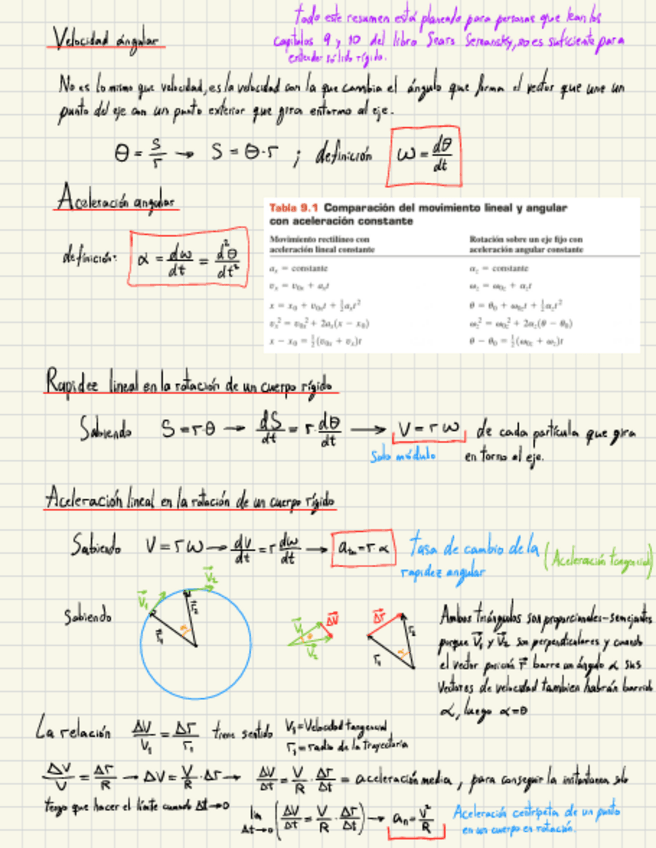 todo este resumen está planeado para personas que lean los
capítulos 9 y 10 del libro Sears Semansky, no es suficiente para
entender sólido rígido.
Velocidad ángular
No es lo mismo que velocidad, es la velocidad con la que cambia el ángulo que forma el vector que une un
punto del eje con un punto exterior que gira entorno al eje.
θ = S/r → S = θ·r ; definición ω = dθ/dt
Aceleración angular
definición: α = dω/dt = d²θ/dt²
Tabla 9.1 Comparación del movimiento lineal y angular
con aceleración constante
Movimiento rectilíneo con Rotación sobre un eje fijo con
aceleración lineal constante aceleración angular constante
aₓ = constante α_z = constante
vₓ = v₀ₓ + aₓt ω_z = ω₀z + α_z t
x = x₀ + v₀ₓt + ½aₓt² θ = θ₀ + ω₀z t + ½α_z t²
vₓ² = v₀ₓ² + 2aₓ(x − x₀) ω_z² = ω₀z² + 2α_z(θ − θ₀)
x − x₀ = ½(v₀ₓ + vₓ)t θ − θ₀ = ½(ω₀z + ω_z)t
Rapidez lineal en la rotación de un cuerpo rígido
Sabiendo S = rθ → dS/dt = r dθ/dt → V = rω de cada partícula que gira
Solo módulo en torno al eje.
Aceleración lineal en la rotación de un cuerpo rígido
Sabiendo V = rω → dv/dt = r dω/dt → a_tan = rα tasa de cambio de la (Aceleración tangencial)
rapidez angular
Sabiendo
V⃗₁ V⃗₂ r⃗₁ r⃗₂
V⃗₁ ΔV⃗ V⃗₂
Δr⃗ r₁ r₂ α
Ambos triángulos son proporcionales-semejantes
porque V⃗₁ y V⃗₂ son perpendiculares y cuando
el vector posición r⃗ barre un ángulo α sus
vectores de velocidad tambien habrán barrido
α, luego α=θ
La relación ΔV/V₁ = Δr/r₁ tiene sentido V₁=Velocidad tangencial
r₁=radio de la trayectoria
ΔV/V = Δr/R → ΔV = V/R · Δr → ΔV/Δt = V/R · Δr/Δt = aceleración media, para conseguir la instantanea solo
tengo que hacer el límite cuando Δt→0
lim Δt→0 (ΔV/Δt = V/R · Δr/Δt) → aₙ = V²/R Aceleración centrípeta de un punto
en un cuerpo en rotación.